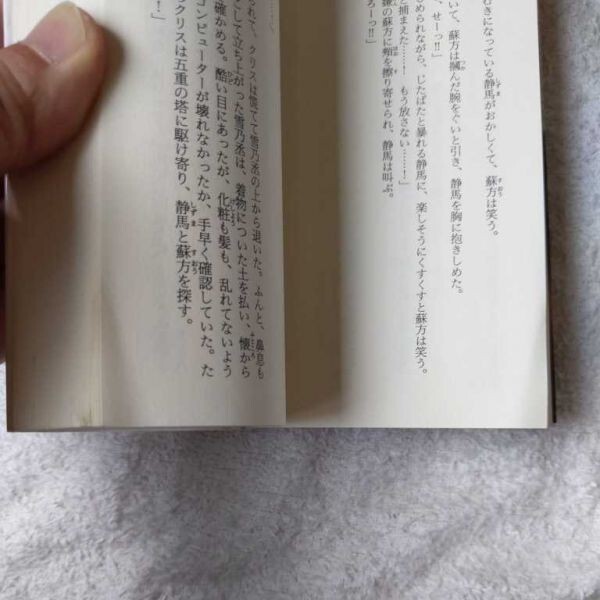 むきになっている静馬がおかしくて、蘇方は笑う。
、せーっ!!」
いて、蘇方は掴んだ腕をぐいと引き、静馬を胸に抱きしめた。
と捕まえた……! もう放さない……!」
められながら、じたばたと暴れる静馬に、楽しそうにくすくすと蘇方は笑う。
の蘇方に頬を擦り寄せられ、静馬は叫ぶ。
ろーっ!!」
られて、クリスは慌てて雪乃丞の上から退いた。ふんと、鼻息も
して立ち上がった雪乃丞は、着物についた土を払い、懐から
確かめる。酷い目にあったが、化粧も髪も、乱れてないよう
コンピューターが壊れなかったか、手早く確認していた。た
クリスは五重の塔に駆け寄り、静馬と蘇方を探す。
!」